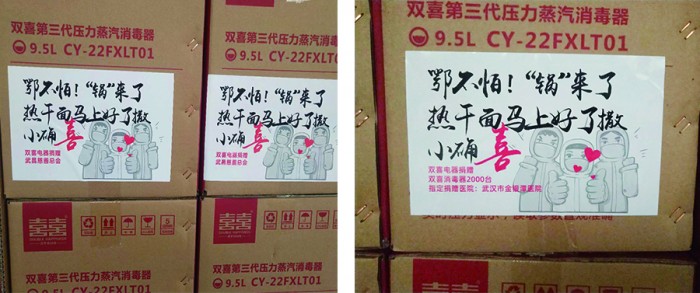 双喜第三代压力蒸汽消毒器
9.5L CY-22FXLT01
鄂不怕！“锅”来了
热干面马上好了撒
小确喜
双喜电器捐赠
武昌慈善总会
双喜第三代压力蒸汽消毒器
9.5L CY-22FXLT01
双喜
9.5L
鄂不怕！“锅”来了
热干面马上好了撒
小确喜
双喜电器捐赠
武昌慈善总会
双喜第三代压力蒸汽消毒器
9.5L CY-22FXLT01
双喜第三代压力蒸汽消毒器
9.5L CY-22FXLT01
鄂不怕！“锅”来了
热干面马上好了撒
小确喜
双喜电器捐赠
双喜消毒器2000台
指定捐赠医院：武汉市金银潭医院